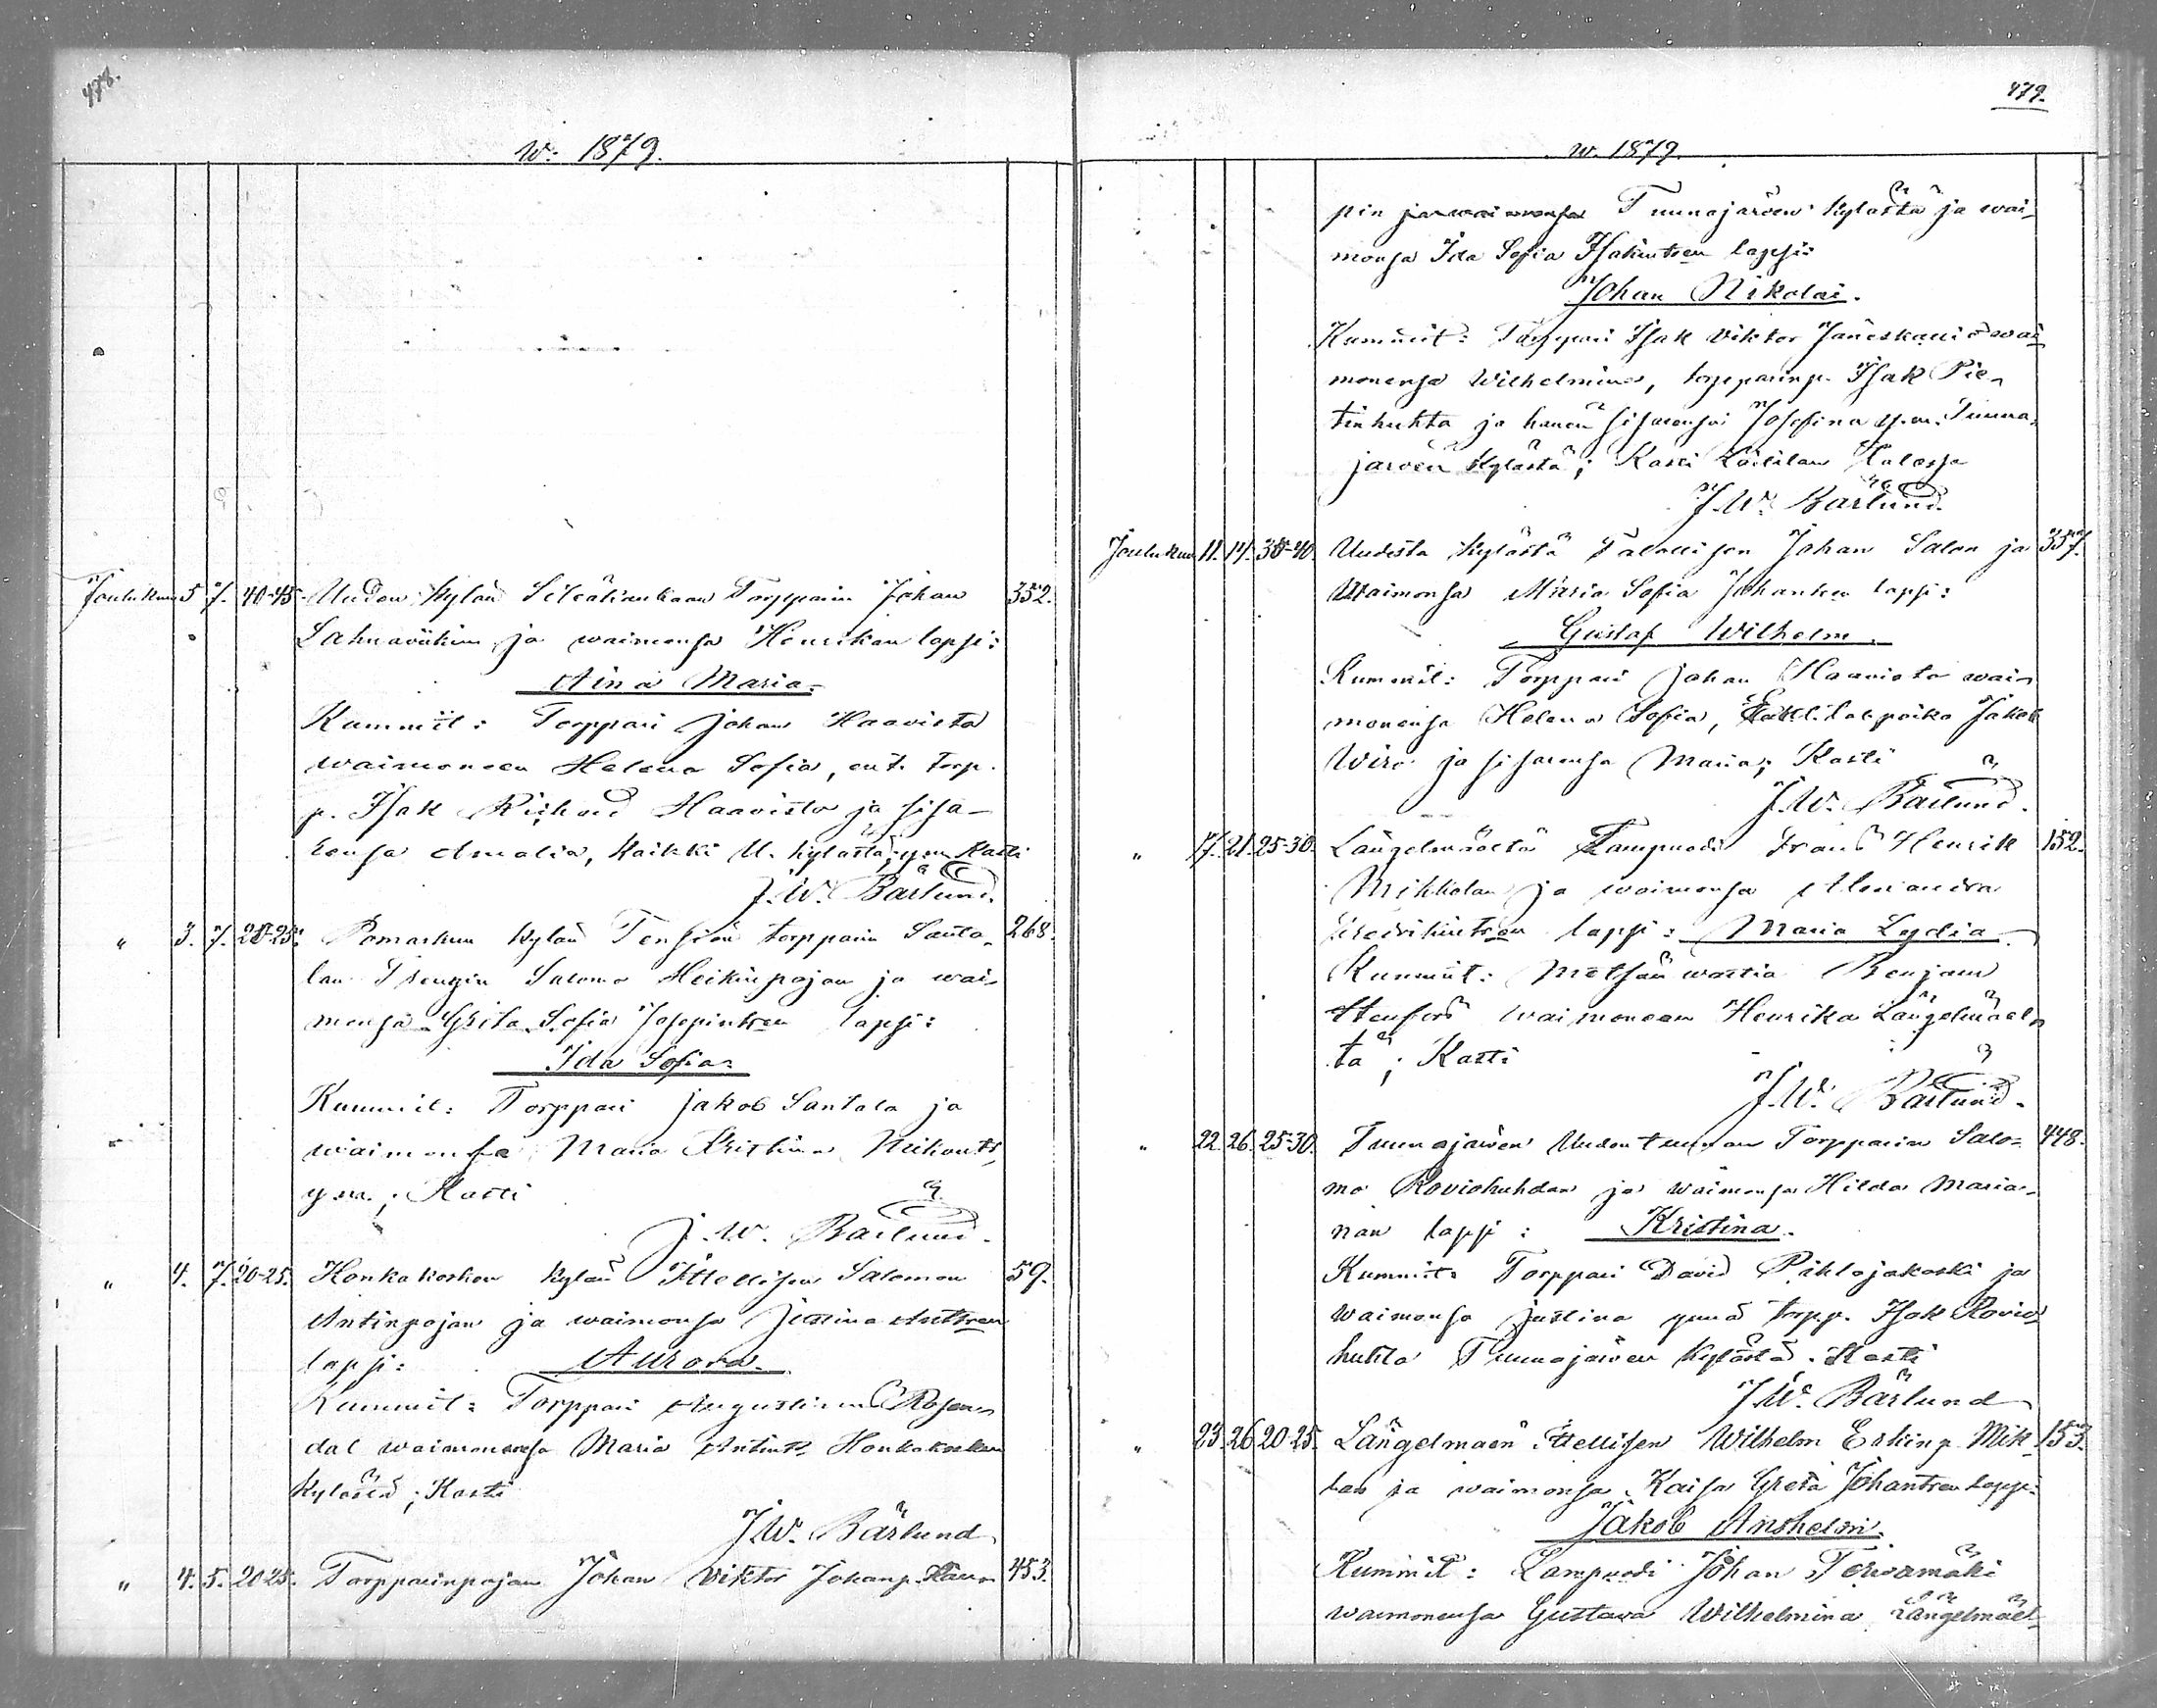 478.
w. 1879.
Joulukuu 5 7. 40-45 Uuden kylän Torpparin Johan 352.
ja waimonsa Henrikan lapsi:
Aina Maria.
Kummit: Torppari Johan Haavisto
waimoneen Helena Sofia, torp.
p. Isak Richard Haavisto ja sisa-
rensa Amalia, kaikki U. kylästä; Kasti
J. W. Bärlund.
" 3. 7. 20-25. Pomarkun kylän torpparin Santa- 268.
lan Trengin Salomo Heikinpojan ja wai-
monsa Greta Sofia Josepintren lapsi:
Ida Sofia.
Kummit: Torppari Jakob Santala ja
waimonsa Maria Kristiina
y.m.; Kasti
J. W. Bärlund.
" 4. 7. 20-25. Honkakosken kylän Itsellisen Salomon 59.
Antinpojan ja waimonsa Justina Anttren
lapsi: Aurora.
Kummit: Torppari Agustinus Rosen-
dal waimonensa Maria Honkakosken
kylästä; Kasti
J. W. Bärlund
" 4. 5. 20-25. Torpparinpojan Johan Viktor Johanp. 453.
479.
w. 1879.
pin Tuunajärven kylästä ja wai-
monsa Ida Sofia Isakintren lapsi:
Johan Nikolai.
Kummit: Torppari Isak Viktor Jäneskallio wai-
monensa Wilhelmina, torpparinp. Isak Pie-
tinhuhta ja hänen sisarensa Josefina y.m. Tuuna-
järven kylästä; Kasti
J. W. Bärlund.
Joulukuu 11. 14. 30-40. Uudesta kylästä Talollisen Johan Salon ja 357.
Waimonsa Maria Sofia Johanken lapsi:
Gustaf Wilhelm.
Kummit: Torppari Johan Haavisto wai-
monensa Helena Sofia, poika Jakob
Wiro ja sisarensa Maria; Kasti
J. W. Bärlund.
" 17. 21. 25-30. Längelmäeltä Lampuodi Frans Henrik 152.
Mikkolan ja waimonsa
lapsi: Maria Lydia.
Kummit: Metsän wartia Benjam
Stenfors waimoneen Henrika Längelmäel-
tä; Kasti
J. W. Bärlund.
" 22. 26. 25-30. Tuunajärven Torpparin Salo- 448.
mo Roviohuhdan ja waimonsa Hilda Maria-
nan lapsi: Kristina.
Kummit: Torppari David Pihlajakoski ja
waimonsa Justina torpp. Isak Rovio-
huhta Tuunajärven kylästä. Kasti
J. W. Bärlund
" 23. 26. 20-25. Längelmäen Itsellisen Wilhelm Erkinp. Mik- 153.
lan ja waimonsa Kaisa Greta Johantren lapsi:
Jakob Anshelm.
Kummit: Lampuodi Johan Terwamäki
waimonensa Gustava Wilhelmina Längelmäel-